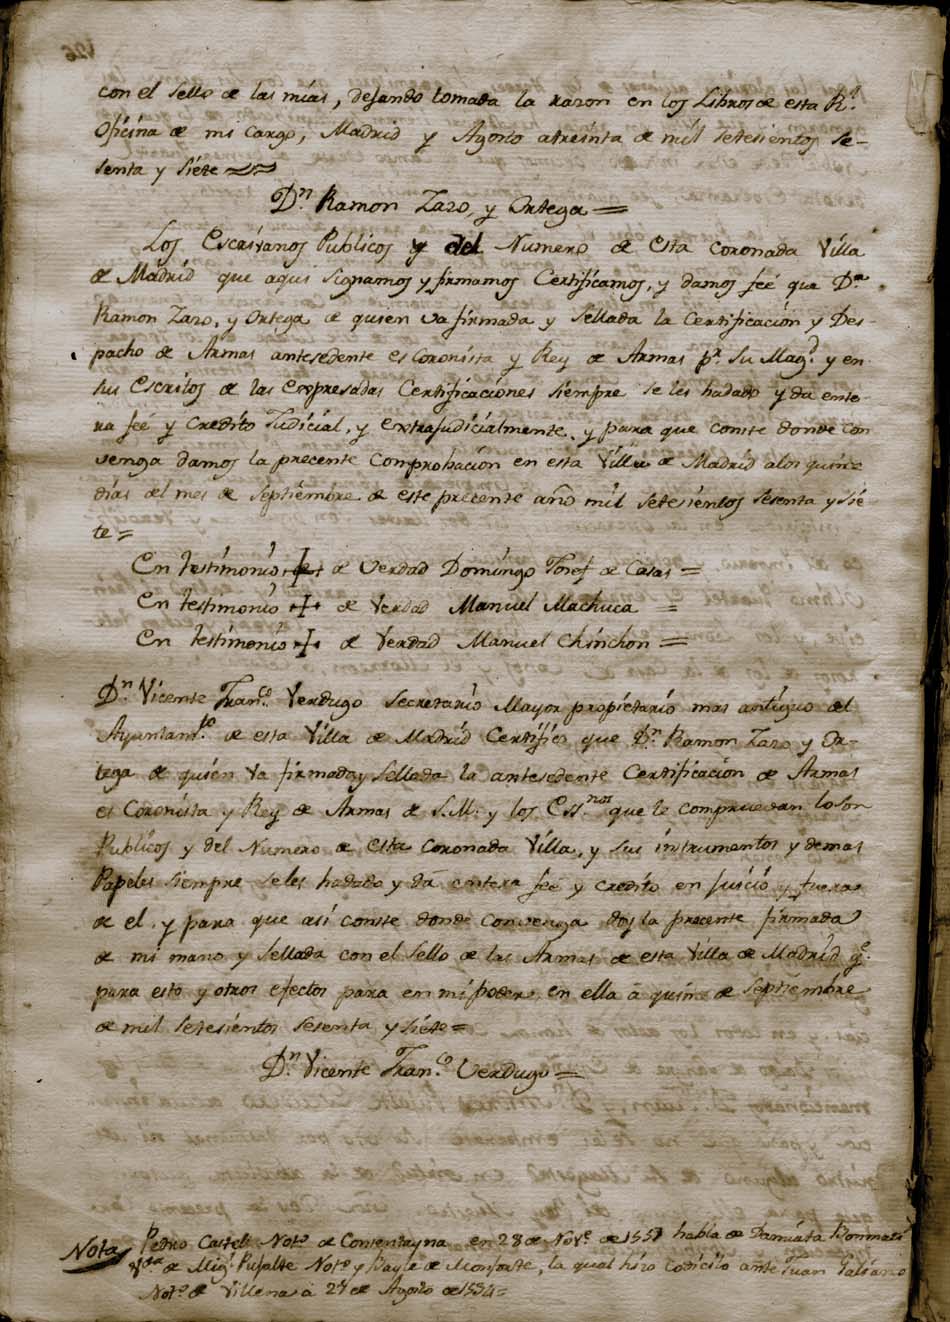 126
con el Sello de las mias, dejando tomada la razon en los Libros de esta Rl.
Oficina de mi cargo, Madrid y Agosto atreinta de mil setesientos se-
senta y siete
Dn. Ramon Zazo, y Ortega =
Los Escrivanos Publicos y del Numero de Esta Coronada Villa
de Madrid que aqui signamos y firmamos Certificamos, y damos feé que Dn.
Ramon Zazo, y Ortega de quien va firmada y Sellada la Certificación y Des-
pacho de Armas antesedente es Coronista y Rey de Armas pr. Su Magd. y en
sus Escritos de las Expresadas Certificaciones siempre se les hadado y da ente-
ra feé y Credito Judicial, y extrajudicialmente, y para que conste donde con
venga damos la precente Comprobación en esta Villa de Madrid alos quinze
dias del mes de Septiembre de este precente año mil setesientos sesenta y sie
te =
En testimonio + de Verdad Domingo Josef de Casas =
En testimonio + de Verdad Manuel Machuca =
En testimonio + de Verdad Manuel Chinchon =
Dn. Vicente Franco. Verdugo Secretario Mayor propietario mas antiguo del
Ayuntamto. de esta Villa de Madrid Certifico que Dn. Ramon Zazo y Or-
tega de quien va firmada y Sellada la antesedente Certificación de Armas
es Coronista y Rey de Armas de S.M. y los Essnos. que le compruevan lo son
Publicos y del Numero de esta Coronada Villa, y sus instrumentos y demas
Papeles siempre seles hadado y dá entera feé y credito en juicio y fuera
de el, y para que asi conste donde convenga doy la precente firmada
de mi mano y Sellada con el Sello de las Armas de esta Villa de Madrid qe.
para esto y otros efectos para en mi poder, en ella á quinze de Septiembre
de mil setesientos sesenta y siete =
Dn. Vicente Franco. Verdugo =
Nota Pedro Castell Noto. de Consentayna en 28 de Nove. de 1551 habla de Damiata Bonmati
vda. de Migl. Pujalte Noto. y Bayle de Monforte, la qual hizo Codicilo ante Juan Galbiano
Noto. de Villena a 27 de Agosto de 1534 =